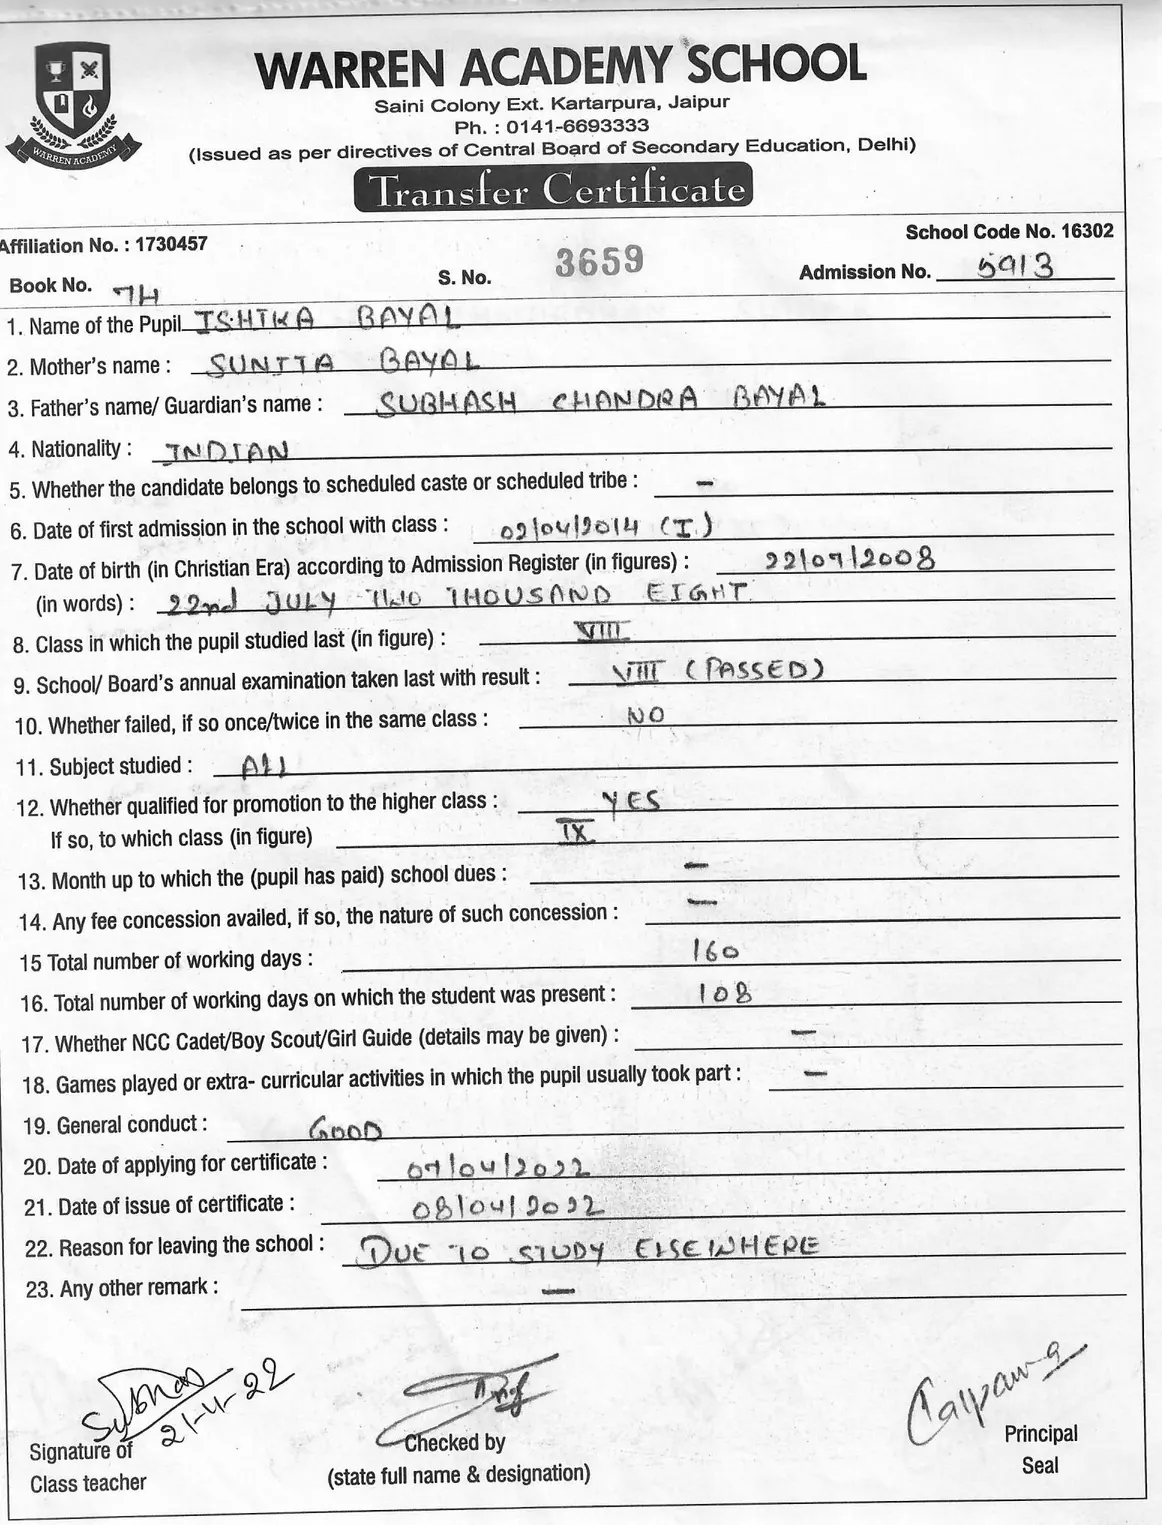 WARREN ACADEMY
WARREN ACADEMY SCHOOL
Saini Colony Ext. Kartarpura, Jaipur
Ph. : 0141-6693333
(Issued as per directives of Central Board of Secondary Education, Delhi)
Transfer Certificate
Affiliation No. : 1730457 School Code No. 16302
Book No. 74 S. No. 3659 Admission No. 5913
1. Name of the Pupil ISHIKA BAYAL
2. Mother's name : SUNITA BAYAL
3. Father's name/ Guardian's name : SUBHASH CHANDRA BAYAL
4. Nationality : INDIAN
5. Whether the candidate belongs to scheduled caste or scheduled tribe : -
6. Date of first admission in the school with class : 02/04/2014 (I)
7. Date of birth (in Christian Era) according to Admission Register (in figures) : 22/07/2008
(in words) : 22nd JULY TWO THOUSAND EIGHT
8. Class in which the pupil studied last (in figure) : VIII
9. School/ Board's annual examination taken last with result : VIII (PASSED)
10. Whether failed, if so once/twice in the same class : NO
11. Subject studied : All
12. Whether qualified for promotion to the higher class : YES
If so, to which class (in figure) IX
13. Month up to which the (pupil has paid) school dues : -
14. Any fee concession availed, if so, the nature of such concession : -
15 Total number of working days : 160
16. Total number of working days on which the student was present : 108
17. Whether NCC Cadet/Boy Scout/Girl Guide (details may be given) : -
18. Games played or extra- curricular activities in which the pupil usually took part : -
19. General conduct : GOOD
20. Date of applying for certificate : 07/04/2022
21. Date of issue of certificate : 08/04/2022
22. Reason for leaving the school : DUE TO STUDY ELSEWHERE
23. Any other remark : -
Subhas
21-4-22
Signature of
Class teacher
Checked by
(state full name & designation)
Principal
Seal